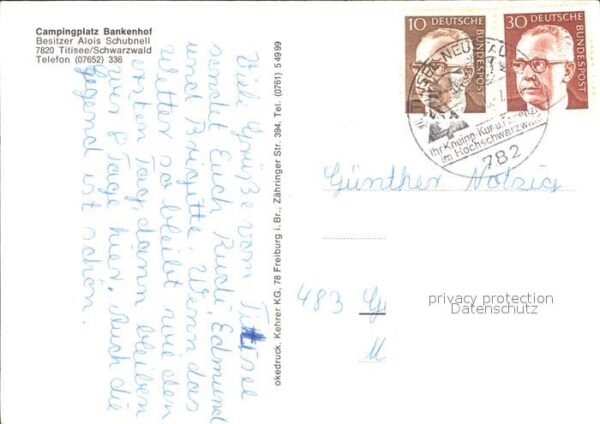 Campingplatz Bankenhof
Besitzer Alois Schubnell
7820 Titisee/Schwarzwald
Telefon (07652) 336
Viele Grüße vom Titisee
sendet Euch Rudi, Edmund
und Brigitte. Wenn das
Wetter so bleibt wie den
ersten Tag, dann bleiben
wir 8 Tage hier. Auch die
Gegend ist schön.
okedruck. Kehrer KG, 78 Freiburg i. Br., Zähringer Str. 394, Tel. (0761) 54999
10 DEUTSCHE BUNDESPOST
30 DEUTSCHE BUNDESPOST
TITISEE-NEUSTADT
Ihr Kneipp-Kur-u.
im Hochschwarzwald
782
Günther Notzig
483 G
privacy protection
Datenschutz
M